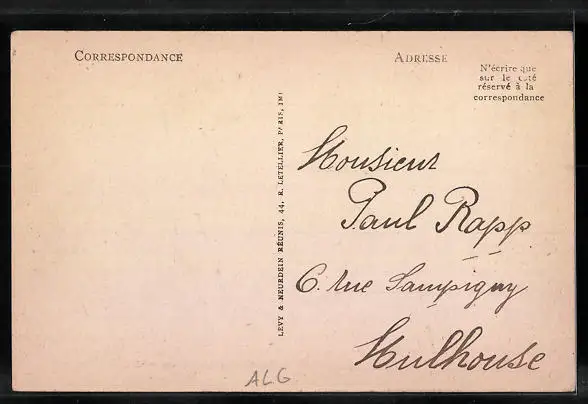 CORRESPONDANCE
ADRESSE
N'écrire que
sur le côté
réservé à la
correspondance
LEVY & NEURDEIN RÉUNIS, 44, R. LETELLIER, PARIS, IMP
Monsieur
Paul Rapp
6. rue Lampigny
Mulhouse
ALG